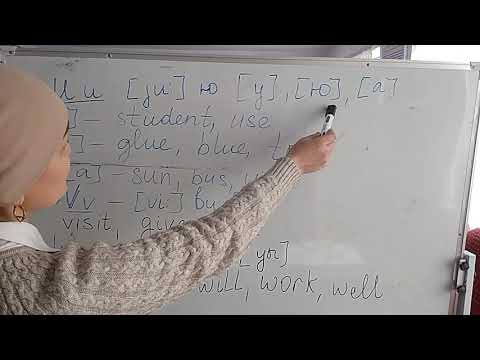 Uu [ju:] ю [у], [ю], [а]
] - student, use
] - glue, blue, t
[а] - sun, bus,
Vv - [vi:] ви
visit, give
, уы]
will, work, well